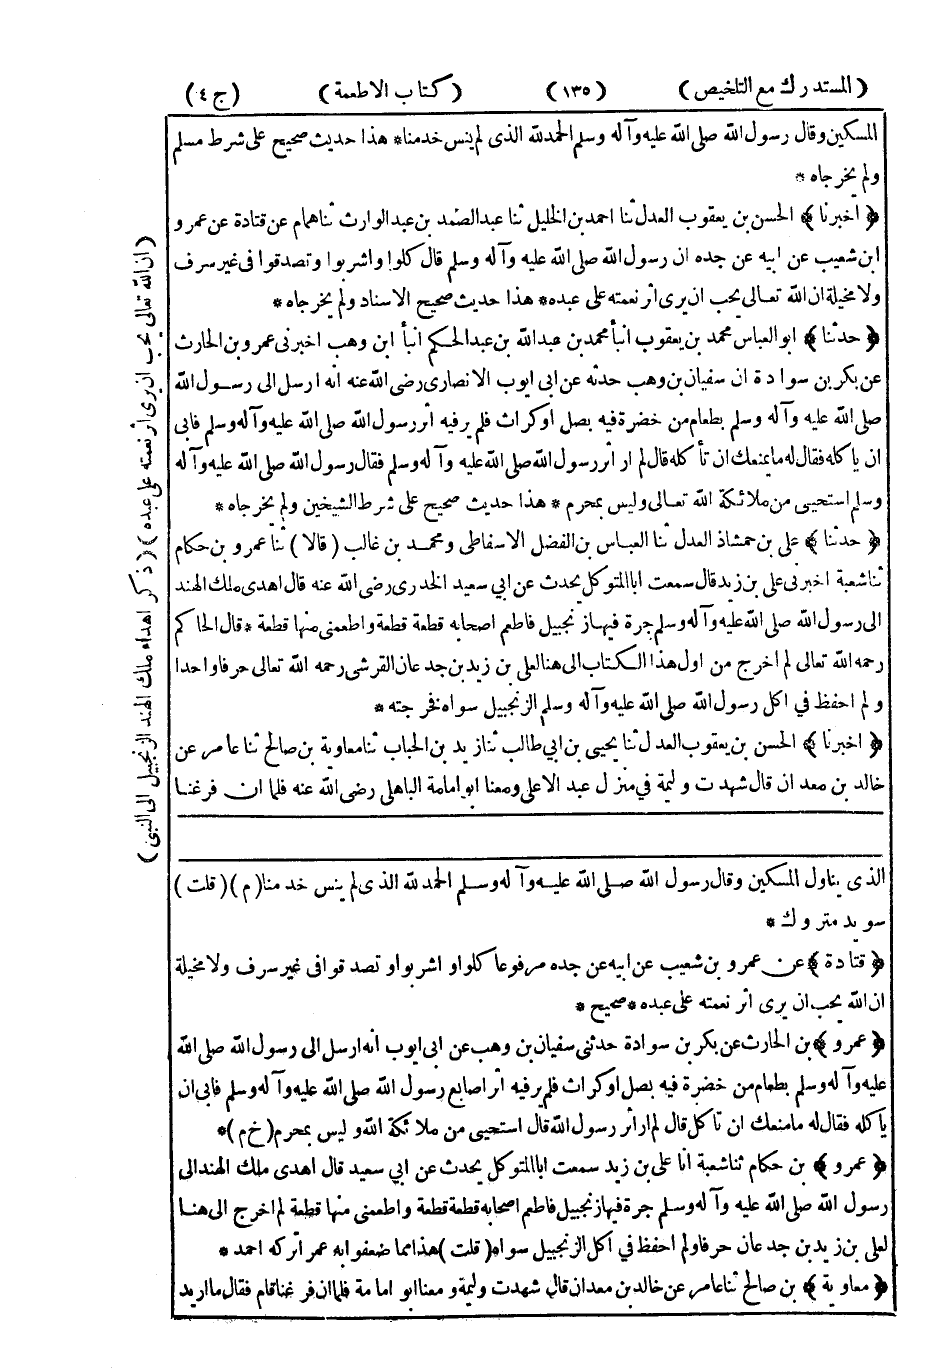 (المستدرك مع التلخيص) (١٣٥) (كتاب الاطعمة) (ج ٤)
المسكين وقال رسول الله صلى الله عليه وآله وسلم الحمدلله الذى لم ينس خدمنا* هذا حديث صحيح على شرط مسلم
ولم يخرجاه *
﴿ اخبرنا ﴾ الحسن بن يعقوب العدل ثنا احمد بن الخليل ثنا عبد الصمد بن عبد الوارث ثنا همام عن قتادة عن عمرو
ابن شعيب عن ابيه عن جده ان رسول الله صلى الله عليه وآله وسلم قال كلوا واشربوا وتصدقوا فى غير سرف
ولا مخيلة ان الله تعالى يحب ان يرى أثر نعمته على عبده* هذا حديث صحيح الاسناد ولم يخرجاه *
﴿ حدثنا ﴾ ابو العباس محمد بن يعقوب انبأ محمد بن عبد الله بن عبد الحكم انبأ ابن وهب اخبرنى عمرو بن الحارث
عن بكر بن سوادة ان سفيان بن وهب حدثه عن ابى ايوب الانصارى رضى الله عنه انه ارسل الى رسول الله
صلى الله عليه وآله وسلم بطعام من خضرة فيه بصل اوكراث فلم ير فيه أثر رسول الله صلى الله عليه وآله وسلم فابى
ان يأكله فقال له مايمنعك ان تأكله قال لم ار أثر رسول الله صلى الله عليه وآله وسلم فقال رسول الله صلى الله عليه وآله
وسلم استحيى من ملائكة الله تعالى وليس بمحرم * هذا حديث صحيح على شرط الشيخين ولم يخرجاه *
﴿ حدثنا ﴾ على بن حمشاذ العدل ثنا العباس بن الفضل الاسفاطى ومحمد بن غالب (قالا) ثنا عمرو بن حكام
ثنا شعبة اخبرنى على بن زيد قال سمعت ابا المتوكل يحدث عن ابي سعيد الخدرى رضى الله عنه قال اهدى ملك الهند
الى رسول الله صلى الله عليه وآله وسلم جرة فيها زنجبيل فاطعم اصحابه قطعة قطعة واطعمنى منها قطعة *قال الحاكم
رحمه الله تعالى لم اخرج من اول هذا الكتاب الى هنا لعلى بن زيد بن جدعان القرشى رحمه الله تعالى حرفا واحدا
ولم احفظ في اكل رسول الله صلى الله عليه وآله وسلم الزنجبيل سواه فخرجته *
﴿ اخبرنا ﴾ الحسن بن يعقوب العدل ثنا يحيى بن ابى طالب ثنا زيد بن الحباب ثنا معاوية بن صالح ثنا عامر عن
خالد بن معدان قال شهدت وليمة في منزل عبد الاعلى ومعنا ابو امامة الباهلى رضى الله عنه فلما ان فرغنا
(ان الله تعالى يحب ان يرى أثر نعمته على عبده) (ذكر اهداء ملك الهند الزنجبيل الى النبى)
الذى يناول المسكين وقال رسول الله صلى الله عليه وآله وسلم الحمد لله الذى لم ينس خدمنا (م) (قلت)
سويد متروك *
﴿ قتادة ﴾ عن عمرو بن شعيب عن ابيه عن جده مرفوعا كلوا واشربوا وتصدقوا فى غير سرف ولا مخيلة
ان الله يحب ان يرى أثر نعمته على عبده *صحيح *
﴿ عمرو ﴾ بن الحارث عن بكر بن سوادة حدثنى سفيان بن وهب عن ابى ايوب انه ارسل الى رسول الله صلى الله
عليه وآله وسلم بطعام من خضرة فيه بصل اوكراث فلم ير فيه أثر اصابع رسول الله صلى الله عليه وآله وسلم فابى ان
يأكله فقال له مامنعك ان تأكل قال لم ار أثر رسول الله قال استحيى من ملائكة الله وليس بمحرم (خ م)*
﴿ عمرو ﴾ بن حكام ثنا شعبة انا على بن زيد سمعت ابا المتوكل يحدث عن ابي سعيد قال اهدى ملك الهند الى
رسول الله صلى الله عليه وآله وسلم جرة فيها زنجبيل فاطعم اصحابه قطعة قطعة واطعمنى منها قطعة لم اخرج الى هنا
لعلى بن زيد بن جدعان حرفا ولم احفظ في اكل الزنجبيل سواه (قلت) هذا مما ضعفوا به عمر اتركه احمد *
﴿ معاوية ﴾ بن صالح ثنا عامر عن خالد بن معدان قال شهدت وليمة ومعنا ابو امامة فلما ان فرغنا قام فقال ما اريد